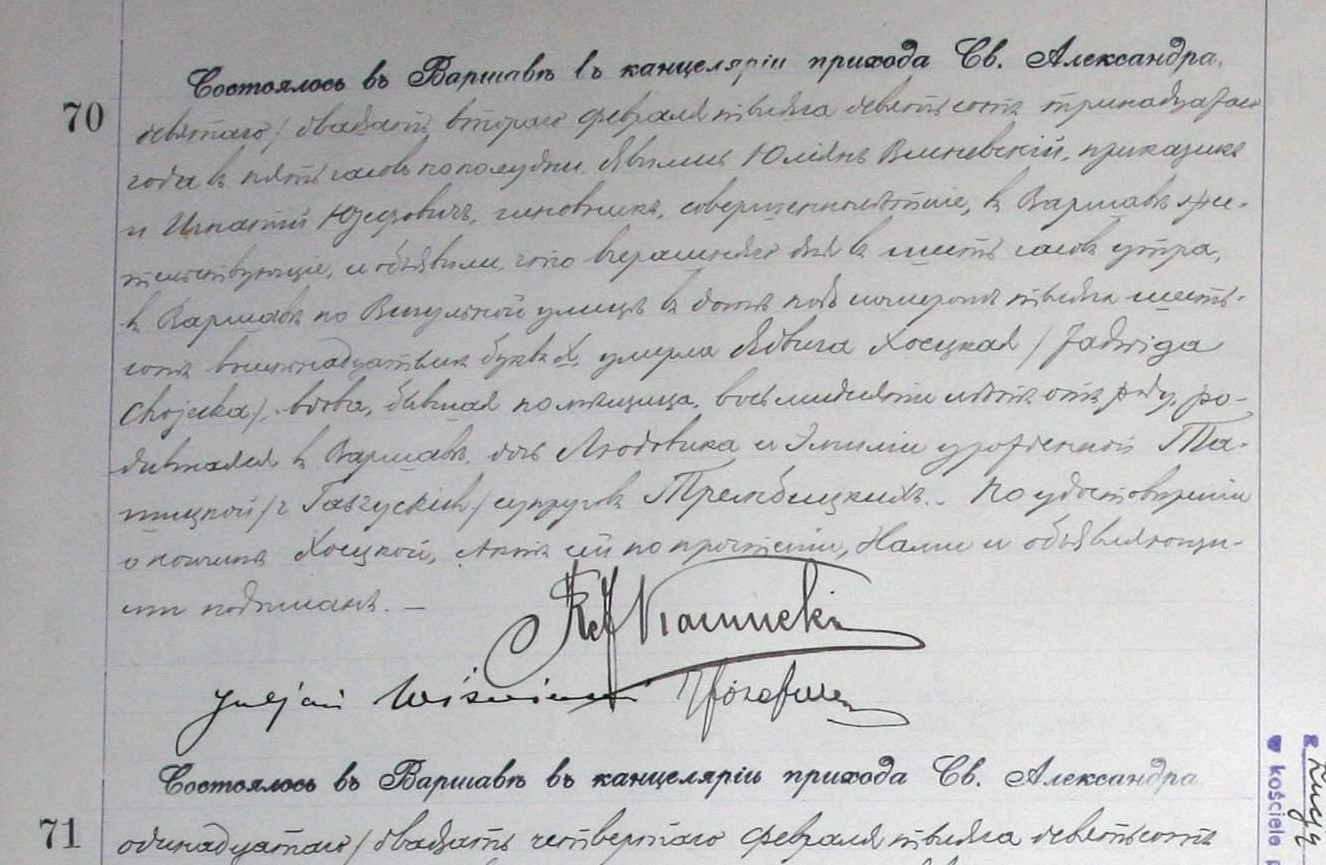 Состоялось въ Варшавѣ въ канцеляріи прихода Св. Александра,
70
девятаго / двадцать второго февраля тысяча девятьсотъ тринадцатаго
года въ пять часовъ пополудни. Явились Юліянъ Висневскій, приказчикъ
и Игнатій Юзефовичъ, чиновникъ, совершеннолѣтніе, въ Варшавѣ жи-
тельствующіе, и объявили, что вчерашняго дня въ шесть часовъ утра,
въ Варшавѣ по Вильчей улицѣ въ домѣ подъ номеромъ тысяча шесть-
сотъ восемнадцатымъ буква умерла Ядвига Хоецкая / Jadwiga
Chojecka /, вдова, бывшая помѣщица, восьмидесяти лѣтъ отъ роду, ро-
дившаяся въ Варшавѣ, дочь Людовика и Эмиліи урожденной
супруговъ Трембицкихъ. По удостовѣреніи
о кончинѣ Хоецкой, Актъ сей по прочтеніи, Нами и объявляющи-
ми подписанъ. —
Juljan
Состоялось въ Варшавѣ въ канцеляріи прихода Св. Александра
71
одинадцатаго / двадцать четвертаго февраля тысяча девятьсотъ
kościele